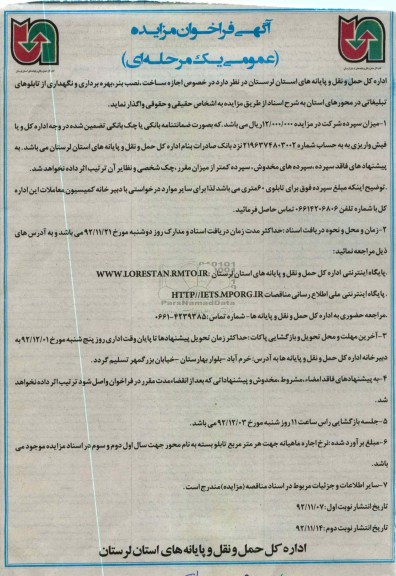 آگهی فراخوان مزایده
(عمومی یک مرحله ای)
اداره کل حمل و نقل و پایانه های استان لرستان در نظر دارد در خصوص اجازه ساخت ،نصب بنر،بهره برداری و نگهداری از تابلوهای
تبلیغاتی در محورهای استان به شرح اسناد از طریق مزایده به اشخاص حقیقی و حقوقی واگذار نماید.
۱-میزان سپرده شرکت در مزایده ۱۲/۰۰۰/۰۰۰ریال می باشد .که بصورت ضمانتنامه بانکی یا چک بانکی تضمین شده در وجه اداره کل و یا
فیش واریزی به به حساب شماره ۲۱۹۶۳۷۴۸۰۳۰۰۲ نزد بانک صادرات بنام اداره کل حمل و نقل و پایانه های استان لرستان می باشد . به
پیشنهاد های فاقد سپرده ،سپرده های مخدوش ، سپرده کمتر از میزان مقرر،چک شخصی و نظایر آن ترتیب اثر داده نخواهد شد.
.توضیح اینکه مبلغ سپرده فوق برای تابلوی ۶۰متری می باشد لذا برای سایر موارد درخواستی با دبیر خانه کمیسیون معاملات این اداره
کل با شماره تلفن ۰۶۶۱۴۲۰۶۸۰۶ تماس حاصل فرمائید.
۲- زمان و محل و نحوه دریافت اسناد :حداکثر مدت زمان دریافت اسناد و مدارک روز دوشنبه مورخ ۹۲/۱۱/۲۱ می باشد و به آدرس های
ذیل مراجعه نمائید:
.پایگاه اینترنتی اداره کل حمل و نقل و پایانه های استان لرستان :WWW.LORESTAN.RMTO.IR
.پایگاه اینترنتی ملی اطلاع رسانی مناقصات HTTP//IETS.MPORG.IR
.مراجعه حضوری به اداره کل حمل و نقل و پایانه ها- شماره تماس :۴۲۳۹۳۸۵-۰۶۶۱
۳-آخرین مهلت و محل تحویل و بازگشایی پاکات :حداکثر زمان تحویل پیشنهادها تا پایان وقت اداری روز پنج شنبه مورخ ۹۲/۱۲/۰۱ به
دبیرخانه اداره کل حمل و نقل و پایانه ها به آدرس: خرم آباد -بلوار بهارستان -خیابان بزرگمهر تسلیم گردد.
۴-به پیشنهادهای فاقد امضاء،مشروط ،مخدوش و پیشنهاداتی که بعد از انقضاء مدت مقرر در فراخوان واصل شود ترتیب اثر داده نخواهد
شد.
۵-جلسه بازگشایی راس ساعت ۱۱ روز شنبه مورخ ۹۲/۱۲/۰۳ می باشد.
۶-مبلغ برآورد شده :نرخ اجاره ماهیانه جهت هر متر مربع تابلو بسته به نام محور جهت سال اول دوم و سوم در اسناد مزایده موجود می
باشد.
۷-سایر اطلاعات و جزئیات مربوط در اسناد مناقصه (مزایده)مندرج است.
تاریخ انتشار نوبت اول :۹۲/۱۱/۰۷
تاریخ انتشار نوبت دوم :۹۲/۱۱/۱۴
اداره کل حمل و نقل و پایانه های استان لرستان